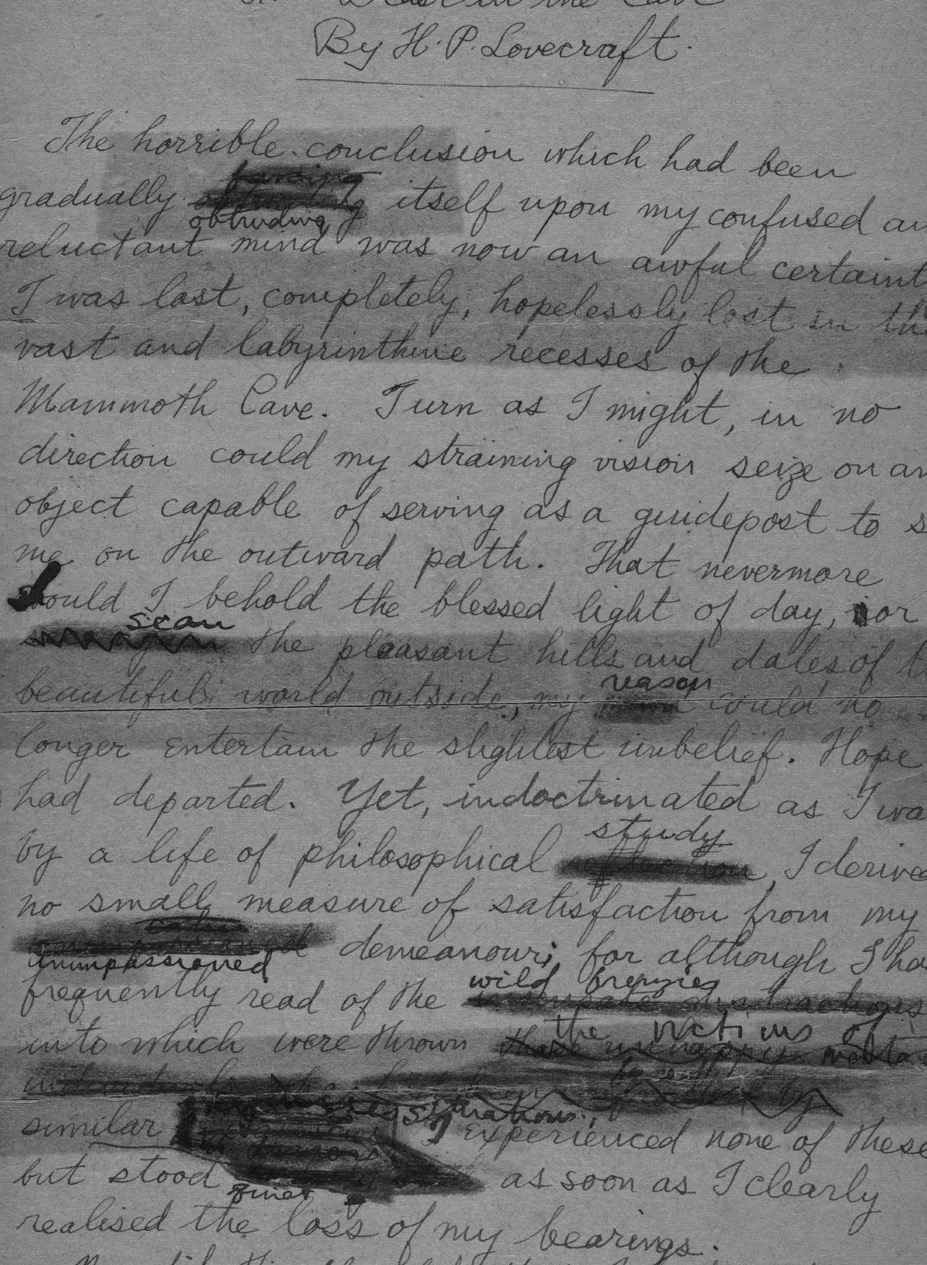 Beast in the Cave
By H. P. Lovecraft.
The horrible conclusion which had been
gradually itself upon my confused an
obtruding
reluctant mind was now an awful certaint
I was lost, completely, hopelessly lost in the
vast and labyrinthine recesses of the
Mammoth Cave. Turn as I might, in no
direction could my straining vision seize on an
object capable of serving as a guidepost to s
me on the outward path. That nevermore
should I behold the blessed light of day, nor
scan
the pleasant hills and dales of t
reason
beautiful world outside, my could no
longer entertain the slightest unbelief. Hope
had departed. Yet, indoctrinated as I wa
study
by a life of philosophical , I derive
no small measure of satisfaction from my
demeanour; for although I ha
unimpassioned
wild frenzies
frequently read of the
the victims of
into which were thrown
situations,
similar I experienced none of these
but stood as soon as I clearly
quiet
realised the loss of my bearings.